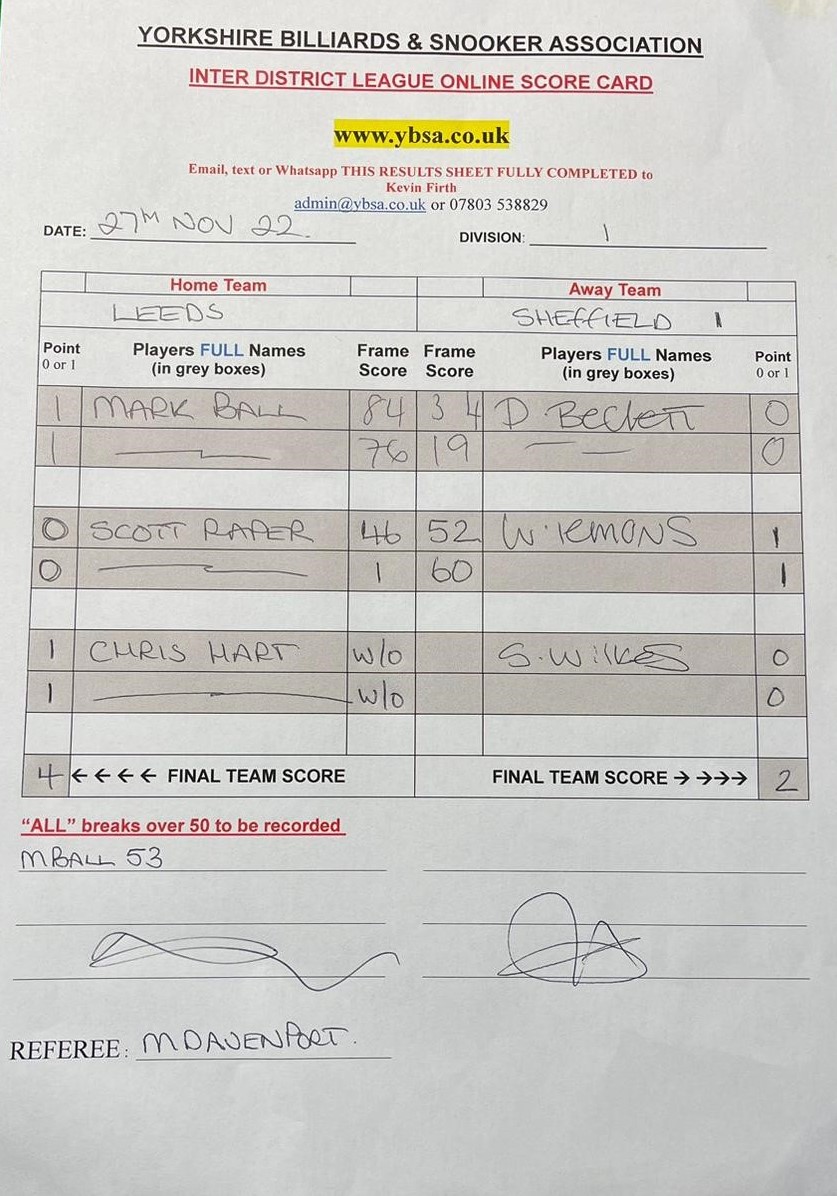 YORKSHIRE BILLIARDS & SNOOKER ASSOCIATION
INTER DISTRICT LEAGUE ONLINE SCORE CARD
www.ybsa.co.uk
Email, text or Whatsapp THIS RESULTS SHEET FULLY COMPLETED to
Kevin Firth
admin@ybsa.co.uk or 07803 538829
DATE: 27TH NOV 22. DIVISION: 1
Home Team Away Team
LEEDS SHEFFIELD 1
Point 0 or 1 Players FULL Names (in grey boxes) Frame Score Frame Score Players FULL Names (in grey boxes) Point 0 or 1
1 MARK BALL 84 34 D Beckett 0
1 76 19 0
0 SCOTT RAPER 46 52 W. lemons 1
0 1 60 1
1 CHRIS HART W/O S. Wilkes 0
1 W/O 0
4 ←←←← FINAL TEAM SCORE FINAL TEAM SCORE →→→→ 2
“ALL” breaks over 50 to be recorded
M BALL 53
REFEREE: M DAVENPORT.